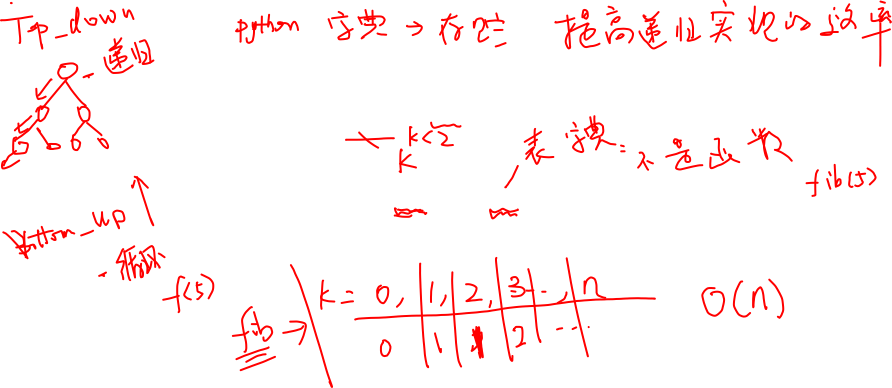 Top_down
python 字典 → 存贮 提高递归实现的效率
- 递归
k<2
k
表 字典: 不是函数
fib(5)
Bottom_up
- 循环
f(5)
fib → k = 0, 1, 2, 3 .., n
0 1 1 2 ...
O(n)